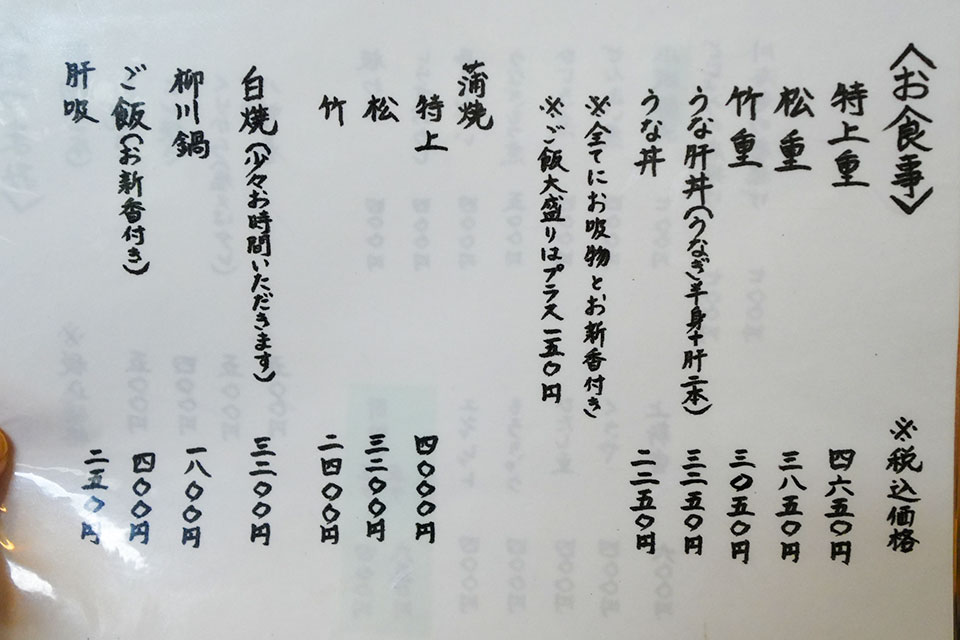 〈お食事〉 ※税込価格
特上重 四六五〇円
松重 三八五〇円
竹重 三〇五〇円
うな肝丼（うなぎ半身＋肝二本） 三二五〇円
うな丼 二二五〇円
※全てにお吸物とお新香付き
※ご飯大盛りはプラス一五〇円
蒲焼
特上 四〇〇〇円
松 三二〇〇円
竹 二四〇〇円
白焼（少々お時間いただきます） 三二〇〇円
柳川鍋 一八〇〇円
ご飯（お新香付き） 四〇〇円
肝吸 二五〇円